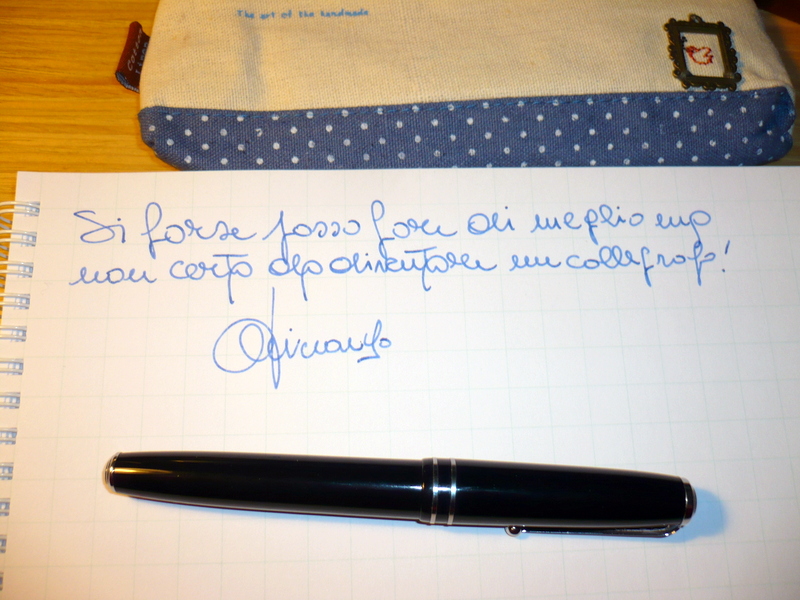 The art of the handmade
Si forse posso fare di meglio ma
non certo da diventare un calligrafo!